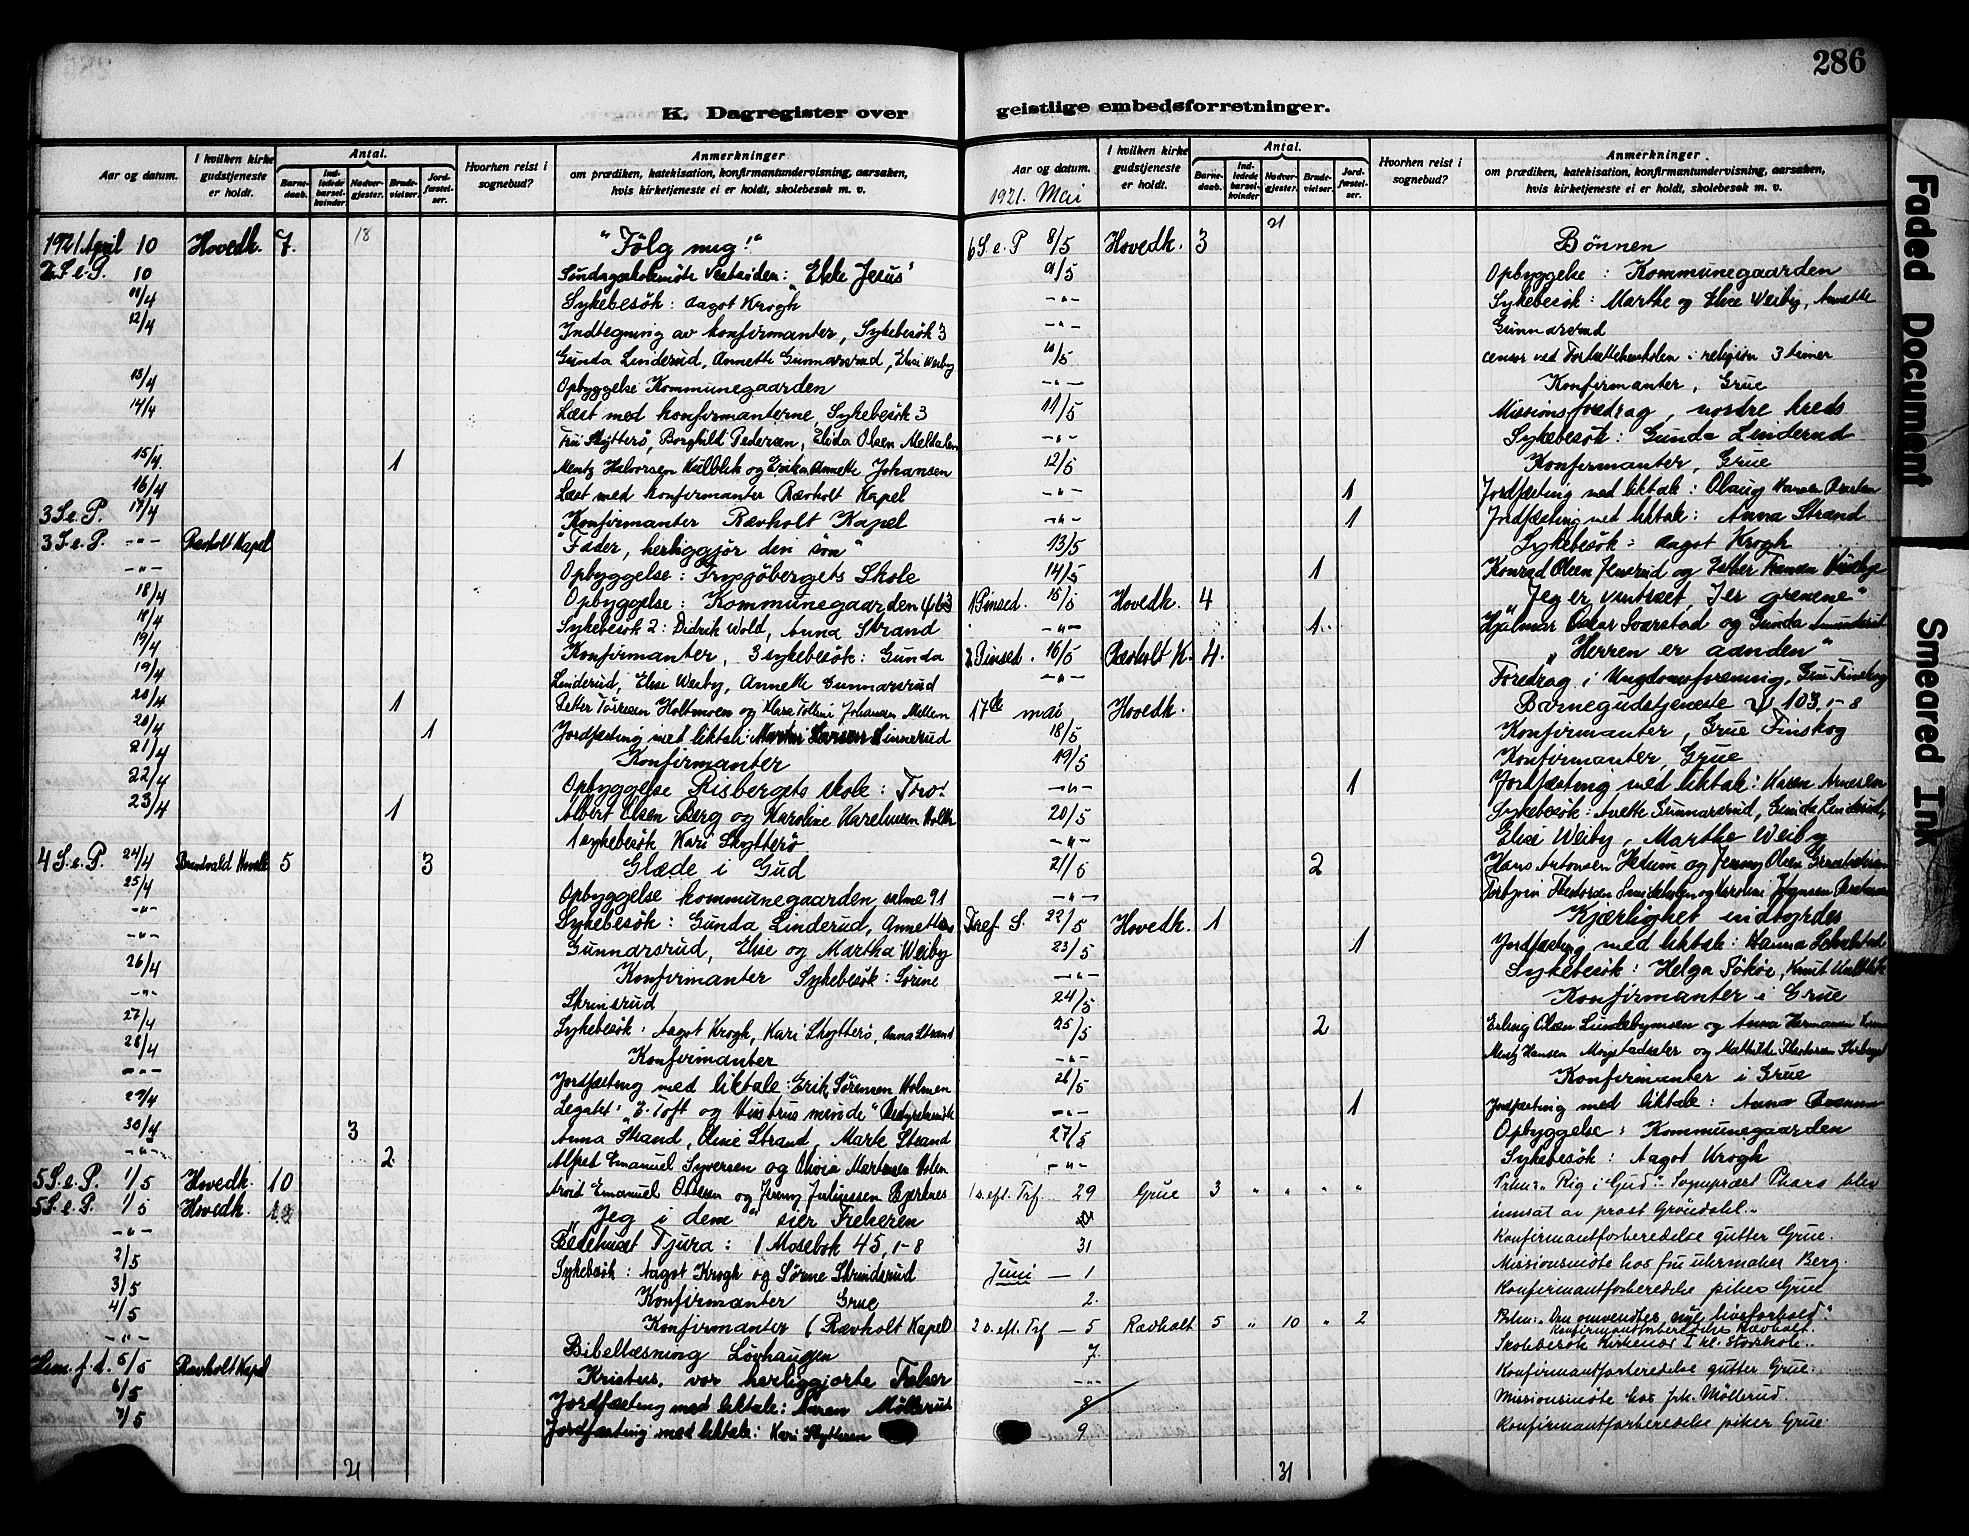 286
K. Dagregister over
Aar og datum.
I hvilken kirke gudstjeneste er holdt.
Antal.
Barne-daab.
Ind-ledede barsel-kvinder
Nadver-gjester.
Brude-vielser.
Jord-fæstel-ser.
Hvorhen reist i sognebud?
Anmerkninger
om prædiken, katekisation, konfirmantundervisning, aarsaken, hvis kirketjeneste ei er holdt, skolebesøk m. v.
1921 April 10 Hovedk. 7. 18 "Følg mig!"
2 S. e. P. 10 Søndagsskolemøte Vestsiden: Jesus
11/4 Sykebesøk: Aagot Krogh
12/4 Indtegning av konfirmanter, Sykebesøk 3
Gunda Linderud, Annette Gunnarsrud, Elise Weiby
13/4 Opbyggelse Kommunegaarden
14/4 Læst med konfirmanterne, Sykebesøk 3
Borghild Pedersen, Elida Olsen
15/4 1 Mentz Halvorsen Kulblik og Erika Annette Johansen
16/4 Læst med konfirmanter Rævholt Kapel
3 S. e. P. 17/4 Konfirmanter Rævholt Kapel
3 S. e. P. -"- Rævholt Kapel "Fader, herliggjør din søn"
-"- Opbyggelse: Skole
18/4 Opbyggelse: Kommunegaarden
18/4 Sykebesøk 2: Didrik Wold, Anna Strand
19/4 Konfirmanter, 3 sykebesøk: Gunda
19/4 Linderud, Elise Weiby, Annette Gunnarsrud
20/4 1 Holtmoen og Johansen
20/4 1 Jordfæsting med liktale:
21/4 Konfirmanter
22/4 Opbyggelse Risbergets skole: Tro!
23/4 1 Albert Olsen Berg og Karoline
1 sykebesøk Kari Skytterø
4 S. e. P. 24/4 5 3 Glæde i Gud
25/4 Opbyggelse kommunegaarden, salme 91
-"- Sykebesøk: Gunda Linderud, Annette
-"- Gunnarsrud, Elise og Martha Weiby
26/4 Konfirmanter Sykebesøk: Sørine
-"- Skrinsrud
27/4 Sykebesøk: Aagot Krogh, Kari Skytterø, Anna Strand
28/4 Konfirmanter
-"- Jordfæsting med liktale: Erik Sørensen Holmen
29/4 Legatet: "E. Toft og Hustrus minde"
30/4 3 Anna Strand, Oline Strand, Marte Strand
-"- 2. Alfred Emanuel Syversen og Olivia Martinsen
5 S. e. P. 1/5 Hovedk. 10 Emanuel og Jenny Juliussen
5 S. e. P. 1/5 Hovedk. "Jeg i dem" sier Frelseren
-"- Bedehuset Tjura: 1 Mosebok 45, 1-8
2/5 Sykebesøk: Aagot Krogh og Sørine
3/5 Konfirmanter Grue
4/5 Konfirmanter (Rævholt Kapel
-"- Bibellæsning Løvhaugen
Him. f. d. 5/5 Rævholt Kapel Kristus, vor herliggjorte Frelser
6/5 Jordfæsting med liktale: Møllerud
7/5 Jordfæsting med liktale: Kari Skytteren
21
geistlige embedsforretninger.
Aar og datum.
1921. Mai
I hvilken kirke gudstjeneste er holdt.
Antal.
Barne-daab.
Ind-ledede barsel-kvinder
Nadver-gjester.
Brude-vielser.
Jord-fæstel-ser.
Hvorhen reist i sognebud?
Anmerkninger.
om prædiken, katekisation, konfirmantundervisning, aarsaken, hvis kirketjeneste ei er holdt, skolebesøk m. v.
21
6 S. e. P 8/5 Hovedk. 3 Bønnen
9/5 Opbyggelse: Kommunegaarden
-"- Sykebesøk: Marthe og Elise Weiby, Annette
-"- Gunnarsrud
10/5 censor ved Fortsættelsesskolen i religion 3 timer
-"- Konfirmanter, Grue
11/5 Missionsforedrag, nordre kreds
-"- Sykebesøk: Gunda Linderud
12/5 Konfirmanter, Grue
-"- 1 Jordfæsting med liktale: Olaug Hansen
-"- 1 Jordfæsting med liktale: Anna Strand
13/5 Sykebesøk: Aagot Krogh
14/5 1 Konrad Olsen Jensrud og Ester Hansen
1 Pinsed. 15/5 Hovedk. 4 "Jeg er vintræet, I er grenene"
-"- 1. Hjalmar Oskar Svarstad og Gunda
2 Pinsed. 16/5 Rævholt K. 4. "Herren er aanden"
-"- Foredrag i Ungdomsforening, Grue Finskog
17de mai Hovedk. Barnegudstjeneste ψ 103, 1-8
18/5 Konfirmanter, Grue Finskog
19/5 Konfirmanter, Grue
-"- 1 Jordfæsting med liktale: Arnesen
20/5 Sykebesøk: Anette Gunnarsrud, Gunda Linderud,
-"- Elise Weiby, Marthe Weiby
21/5 2 Hans Antonsen og Jenny Olsen
-"- Torbjørn og Karoline
Tref. S. 22/5 Hovedk. 1 Kjærlighet indbyrdes
23/5 1 Jordfæsting med liktale: Hanna
-"- Sykebesøk: Helga, Knut Kulblik
24/5 Konfirmanter i Grue
25/5 2 Erling Olsen Lundebymoen og Anna Hermansen
-"- Mentz Hansen og Mathilde
26/5 Konfirmanter i Grue
-"- 1 Jordfæsting med liktale: Anna
27/5 Opbyggelse: Kommunegaarden
-"- Sykebesøk: Aagot Krogh
1 s. eft. Trf. 29 Grue 3 " " " " "Rig i Gud". Sogneprest blev
innsat av prost Grøndahl.
Konfirmantforberedelse gutter Grue.
31 Missionsmøte hos fru urmaker Berg.
Juni — 1 Konfirmantforberedelse piker Grue
2.
2 s. eft. Trf — 5 Rævholt 5 " 10 " 2 Den omvendtes nye livsforhold".
Konfirmantforberedelse Rævholt.
7. Skolebesøk Kirkenær I kl. Storskole.
-"- Konfirmantforberedelse gutter Grue.
8 Missionsmøte hos frk. Møllerud.
9 Konfirmantforberedelse piker Grue.
31
Faded Document
Smeared Ink